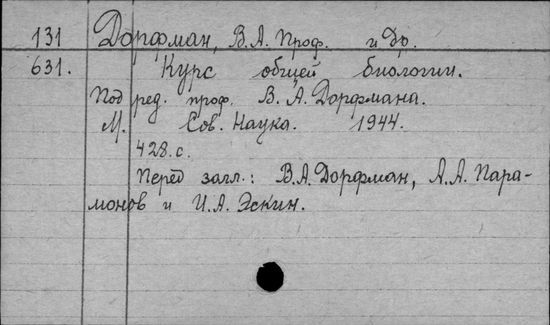 131 Дорфман, В.А. Проф. и Др.
631. Курс общей биологии.
Под ред. проф. В.А. Дорфмана.
М. Сов. Наука. 1944.
428.с.
Перед загл.: В.А. Дорфман, А.А. Пара-
монов и И.А. Эскин.